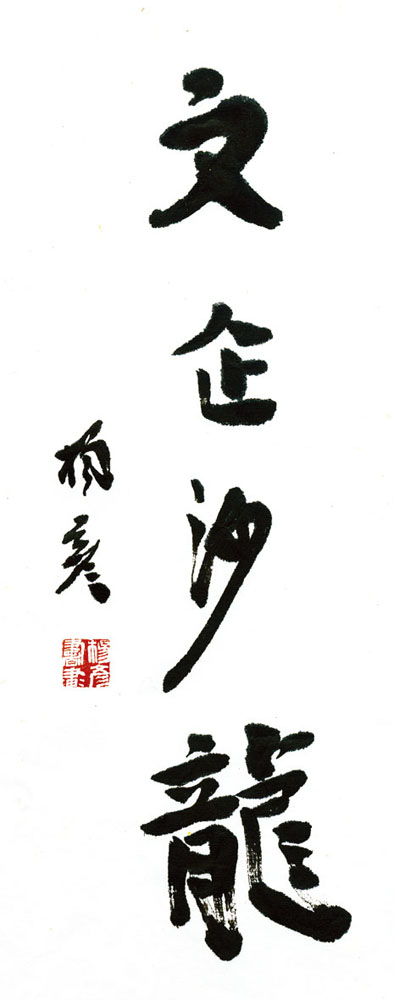 文企沙龍
楊彥